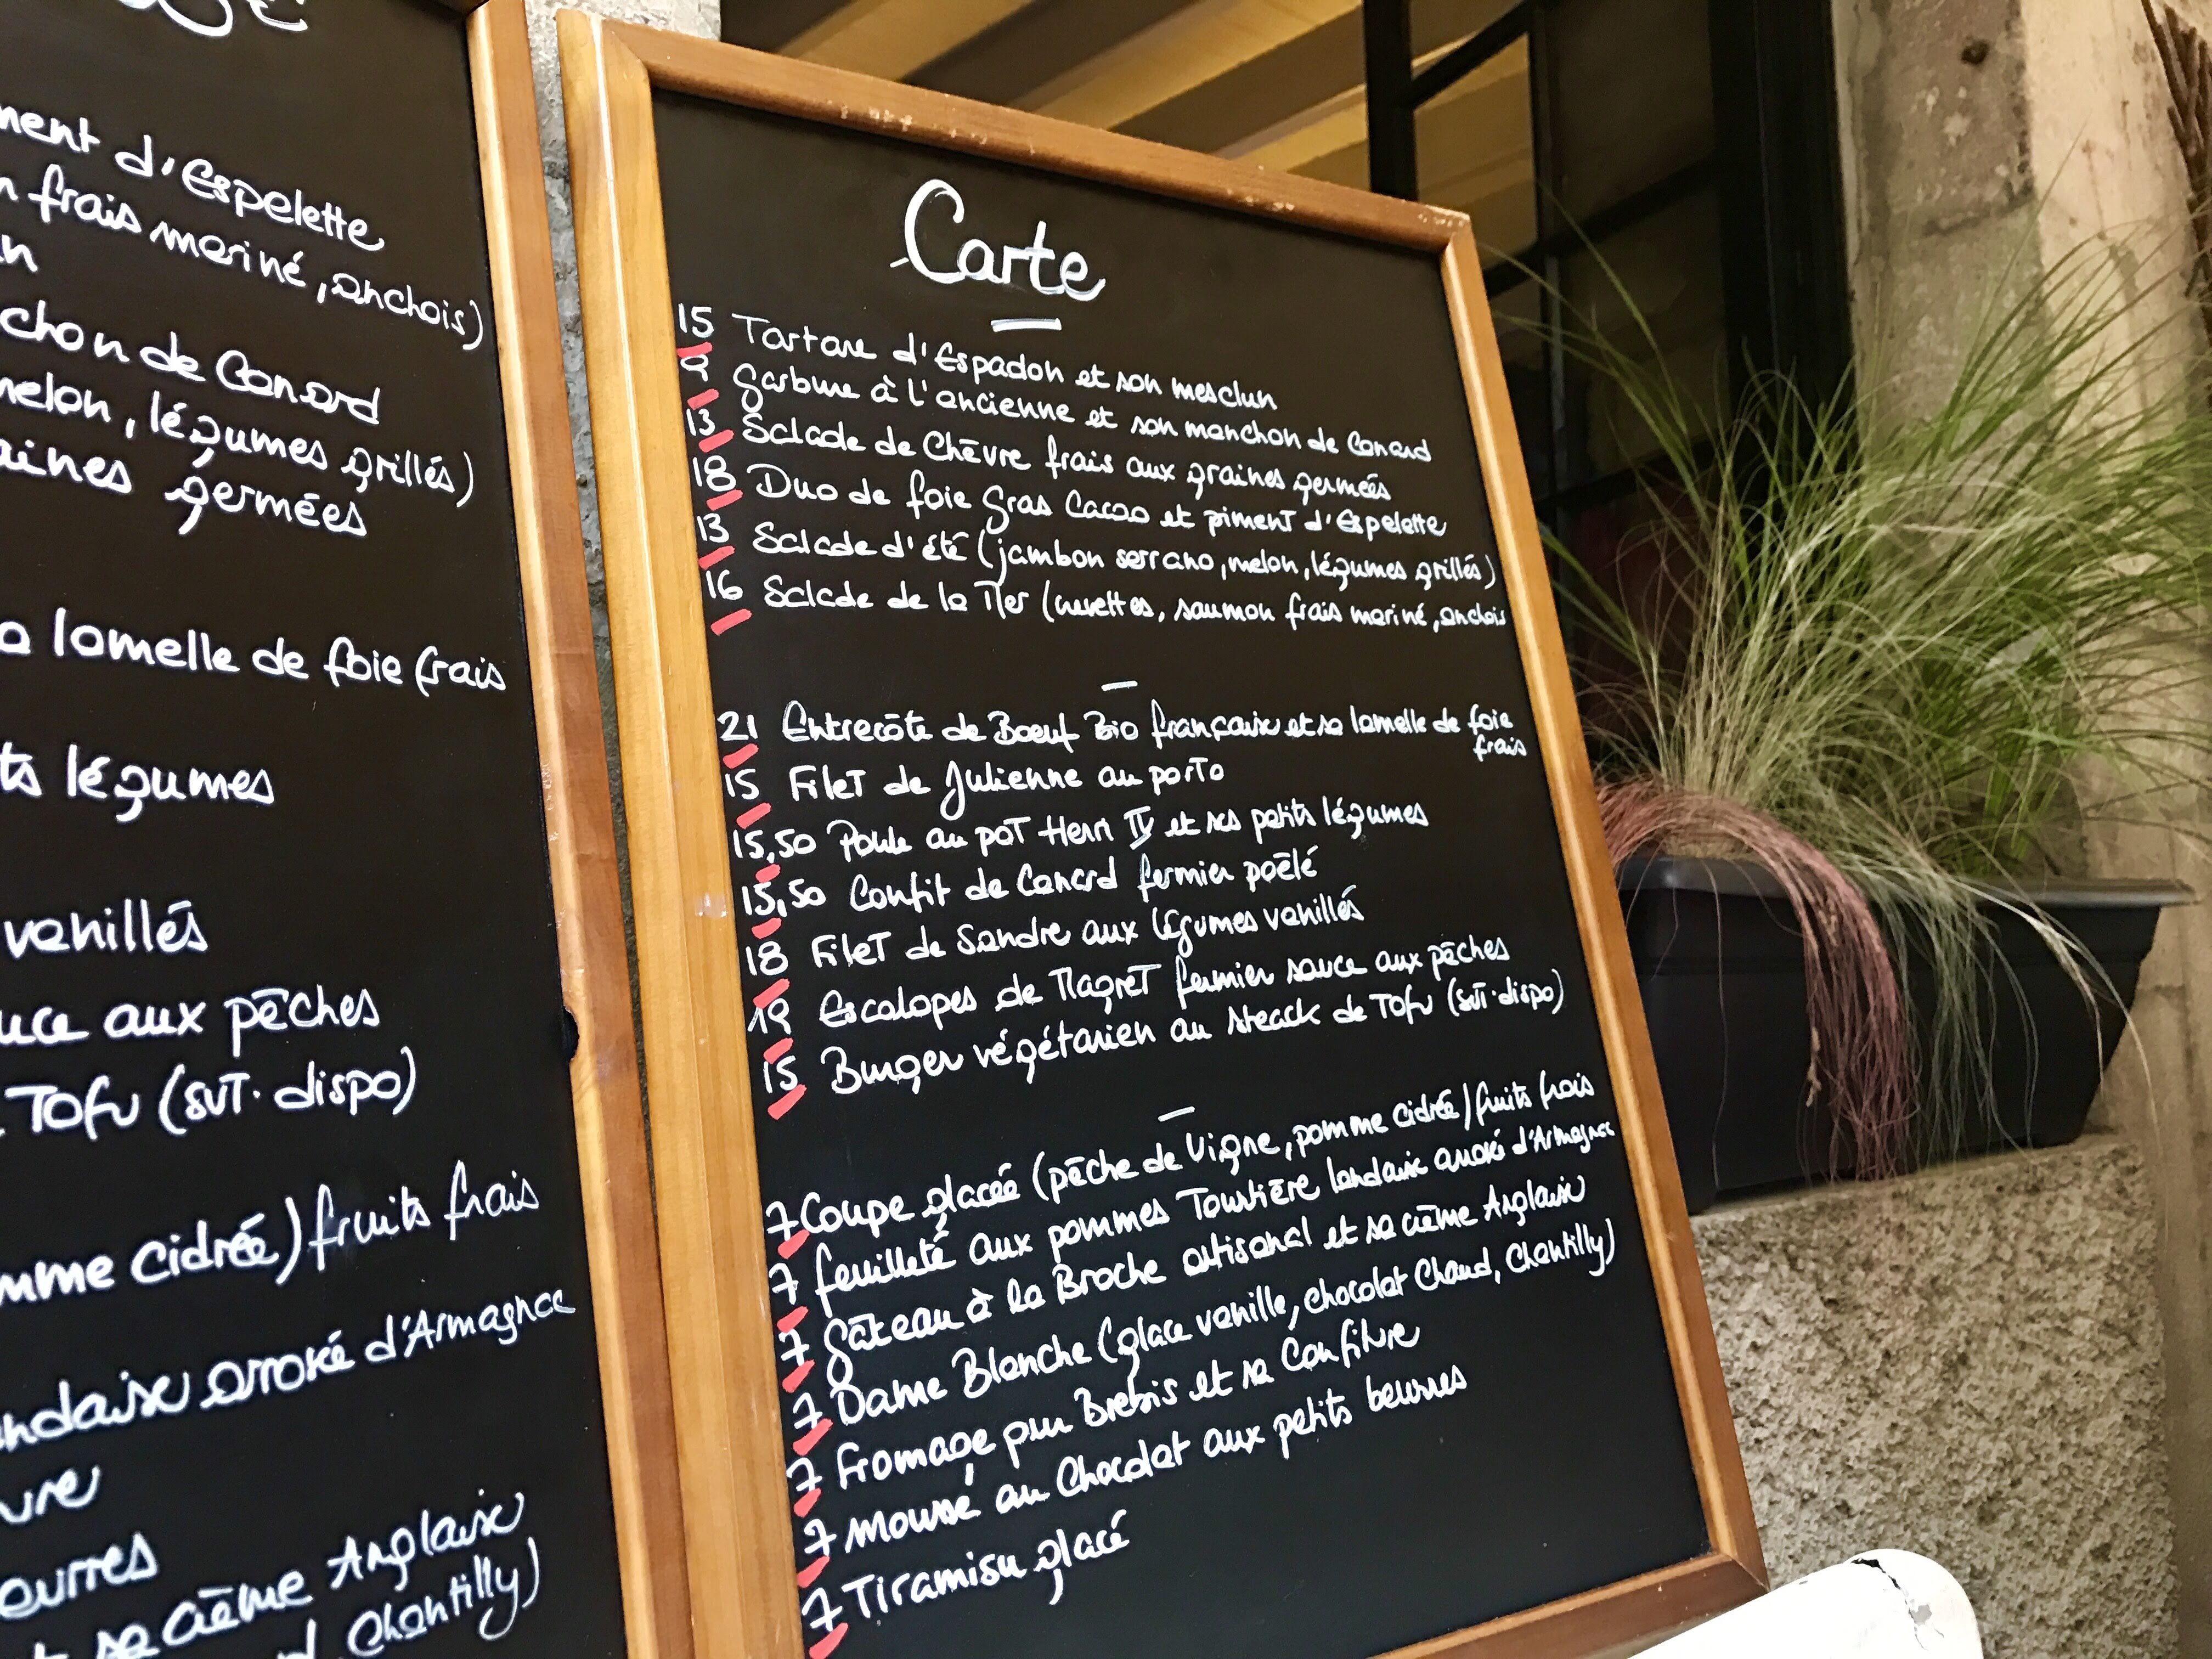 ment d'Espelette
frais mariné, anchois)
chon de Canard
melon, légumes grillés)
aines germées
a lamelle de foie frais
ts légumes
vanillés
uce aux pêches
Tofu (svt. dispo)
mme cidrée) fruits frais
ndaise arrosé d'Armagnac
ure
eurres
sa crème Anglaise
d, Chantilly)
Carte
15 Tartare d'Espadon et son mesclun
9 Garbure à l'ancienne et son manchon de Canard
13 Salade de Chèvre frais aux graines germées
18 Duo de foie Gras Cacao et piment d'Espelette
13 Salade d'été (jambon serrano, melon, légumes grillés)
16 Salade de la Mer (crevettes, saumon frais mariné, anchois
21 Entrecôte de Boeuf Bio française et sa lamelle de foie
frais
15 Filet de Julienne au porto
15,50 Poule au pot Henri IV et ses petits légumes
15,50 Confit de Canard fermier poêlé
18 Filet de Sandre aux légumes vanillés
19 Escalopes de Magret fermier sauce aux pêches
15 Burger végétarien au steack de Tofu (svt. dispo)
7 Coupe glacée (pêche de Vigne, pomme cidrée) fruits frais
7 feuilleté aux pommes Tourtière landaise arrosé d'Armagnac
7 Gâteau à la Broche artisanal et sa crème Anglaise
7 Dame Blanche (glace vanille, chocolat Chaud, Chantilly)
7 Fromage pur Brebis et sa Confiture
7 Mousse au Chocolat aux petits beurres
7 Tiramisu glacé